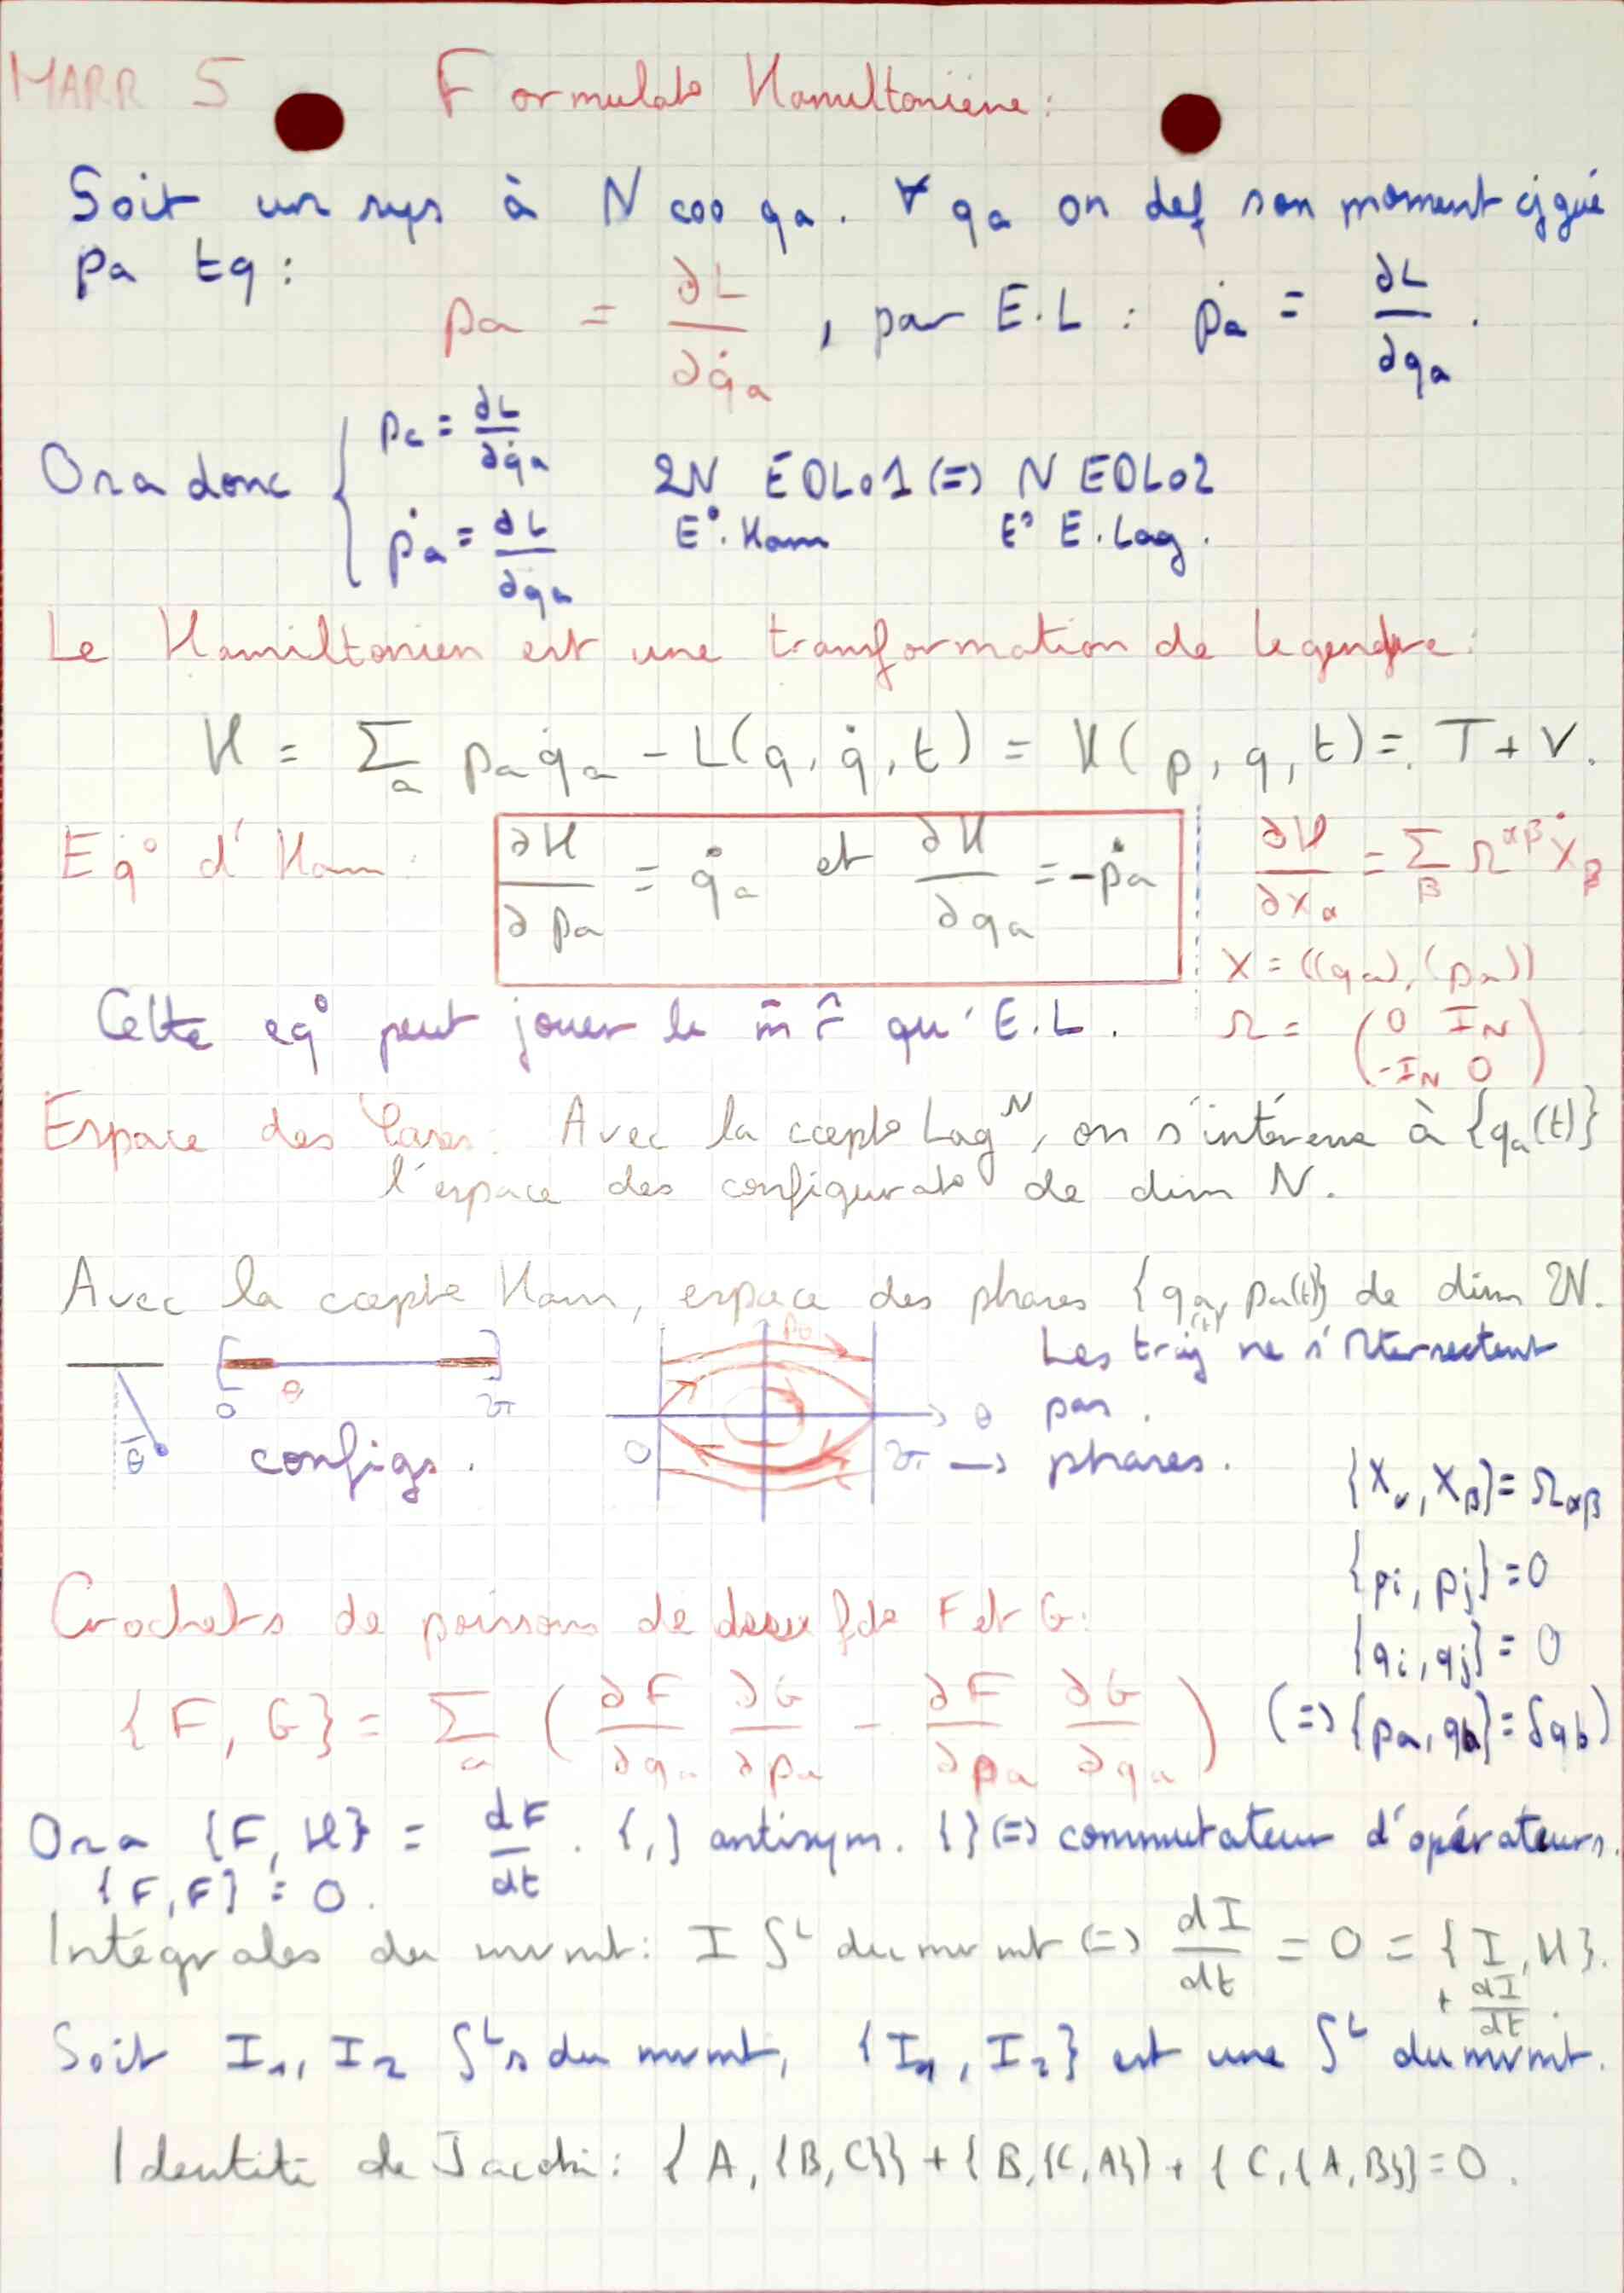 MARR 5 Formulat° Hamiltoniène :
Soit un sys à N coo qa. ∀ qa on def son moment cjgué
pa tq :
pa = ∂L/∂q̇a , par E.L : ṗa = ∂L/∂qa .
On a donc { pa = ∂L/∂q̇a 2N EDLo1 (=) N EDLo2
ṗa = ∂L/∂qa E°. Ham E° E. Lag.
Le Hamiltonien est une transformation de legendre :
H = Σa pa q̇a - L(q, q̇, t) = H(p, q, t) = T + V.
Eq° d'Ham : ∂H/∂pa = q̇a et ∂H/∂qa = -ṗa
∂H/∂Xα = Σβ Ω^αβ Ẋβ
X = ((qa), (pa))
Ω = (0 IN
-IN 0)
Cette eq° peut jouer le m̄ r̂ qu' E.L.
Espace des : Avec la cœpt° Lag^N, on s'intéresse à {qa(t)}
l'espace des configurat° de dim N.
Avec la cœpt° Ham, espace des phases {qa(t), pa(t)} de dim 2N.
Les traj ne s'intersectent
pas.
θ
0 θ 2π
configs.
pθ
0 2π θ
→ phases.
{Xα, Xβ} = Ωαβ
{pi, pj} = 0
{qi, qj} = 0
Crochets de poissons de deux f de F et G :
{F, G} = Σa (∂F/∂qa ∂G/∂pa - ∂F/∂pa ∂G/∂qa) (=> {pa, qb} = δab)
On a {F, H} = dF/dt . {,} antisym. {} (=) commutateur d'opérateurs.
{F, F} = 0.
Intégrales du mvmt : I ∫^L du mvmt (=) dI/dt = 0 = {I, H}.
+ dI/dt .
Soit I1, I2 ∫^Ls du mvmt, {I1, I2} est une ∫^L du mvmt.
Identité de Jacobi : {A, {B, C}} + {B, {C, A}} + {C, {A, B}} = 0.